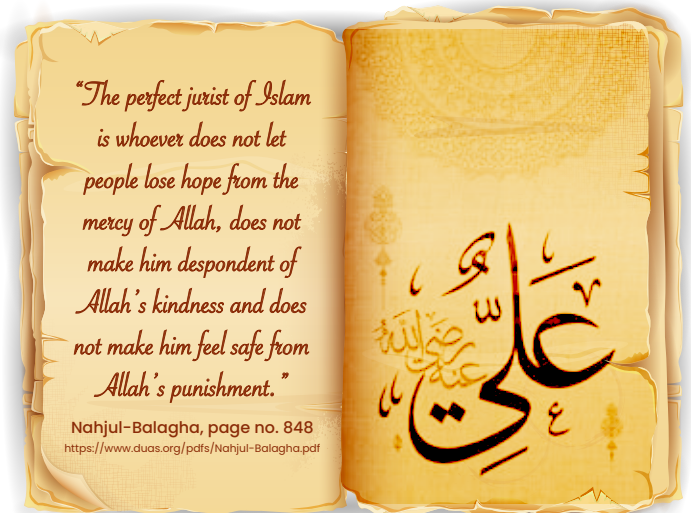 “The perfect jurist of Islam
is whoever does not let
people lose hope from the
mercy of Allah, does not
make him despondent of
Allah’s kindness and does
not make him feel safe from
Allah’s punishment.”
Nahjul-Balagha, page no. 848
https://www.duas.org/pdfs/Nahjul-Balagha.pdf
عَلِيٌّ
رضي الله عنه